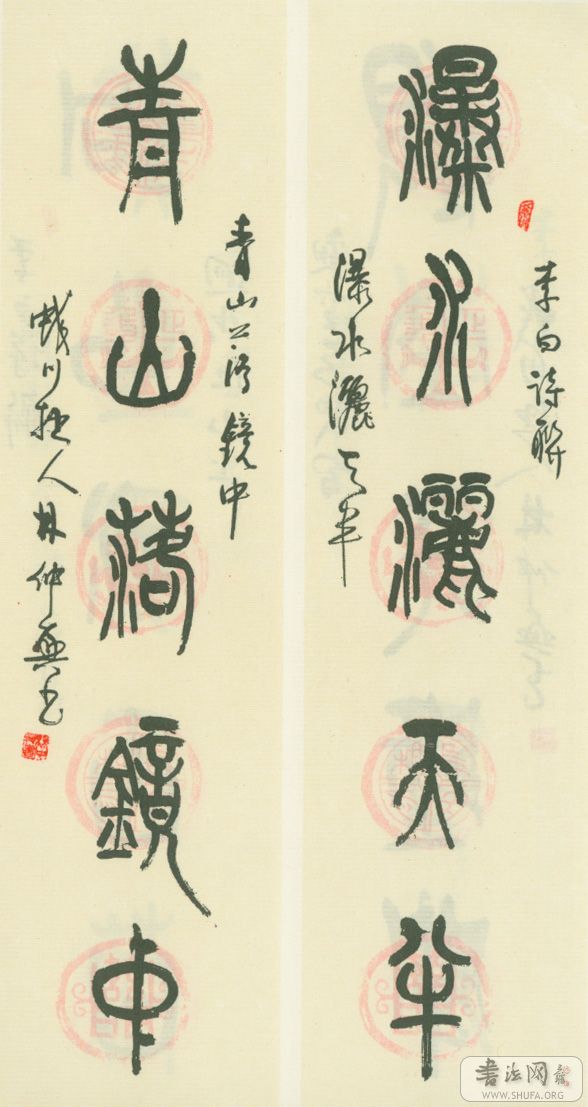 瀑水灑天半
李白詩聯
瀑水灑天半
青山落鏡中
青山落鏡中
林仲興書
書法网
WWW.SHUFA.ORG